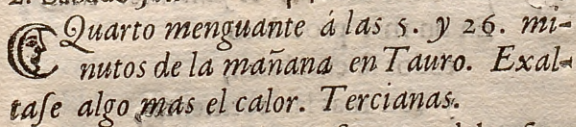 Quarto menguante á las 5. y 26. mi-
nutos de la mañana en Tauro. Exal-
taſe algo mas el calor. Tercianas.